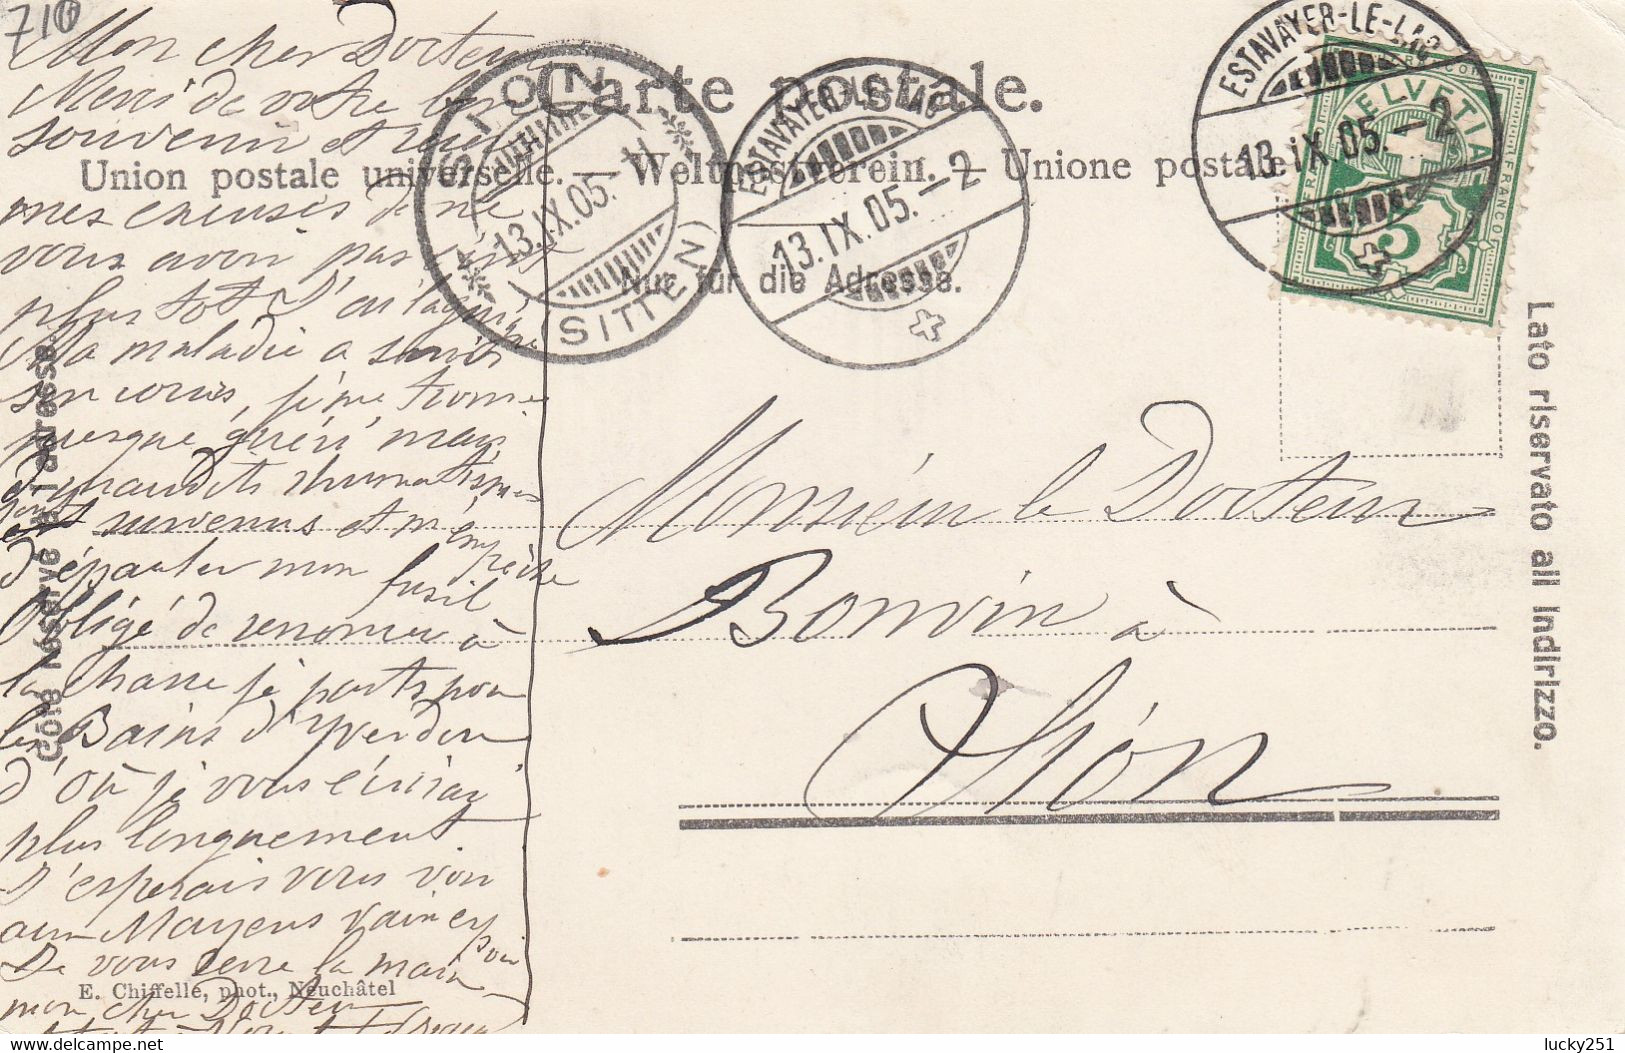 710
Carte postale.
Union postale universelle. — Weltpostverein. — Unione postale
Nur für die Adresse.
Côté réservé à l'adresse.
Lato riservato all Indirizzo.
SION
13.IX.05.
(SITTEN)
ESTAVAYER-LE-LAC
13.IX.05.—2
ESTAVAYER-LE-LAC
13.IX.05.—2
HELVETIA
FRANCO
FRANCO
5
Mon cher Docteur
Merci de votre bon
souvenir et
mes excuses de ne
vous avoir pas écrit
plus tot
Ma maladie a suivi
son cours, je me trouve
presque guéri, mais
de maudits rhumatismes
sont survenus et m'empêche
d'épauler mon fusil
Obligé de renoncer à
la chasse je parts pour
les Bains d'Yverdon
d'où je vous écrirai
plus longuement
J'esperais vous voir
aux Mayens vain espoir
Je vous serre la main
mon cher Docteur
Monsieur le Docteur
Bonvin à
Sion
E. Chiffelle, phot., Neuchâtel
lucky251